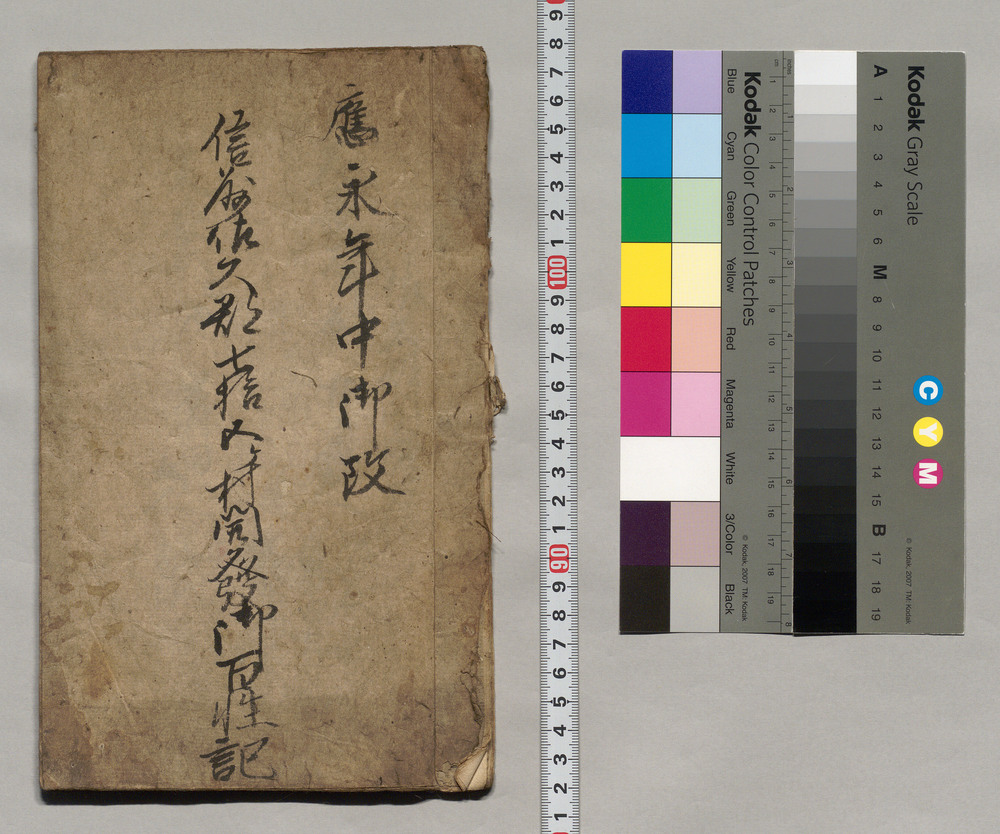 應永年中御改
信州佐久郡七拾八ケ村開發御百姓記
9 8 7 6 5 4 3 2 1 100 9 8 7 6 5 4 3 2 1 90 9 8 7 6 5 4 3 2 1
Kodak Color Control Patches
Blue Cyan Green Yellow Red Magenta White 3/Color Black
© Kodak, 2007 TM: Kodak
inches 1 2 3 4 5 6 7 8
cm 1 2 4 5 6 7 8 9 10 11 12 13 15 16 17 18 19
Kodak Gray Scale
A 1 2 3 4 5 6 M 8 9 10 11 12 13 14 15 B 17 18 19
C Y M
© Kodak, 2007 TM: Kodak